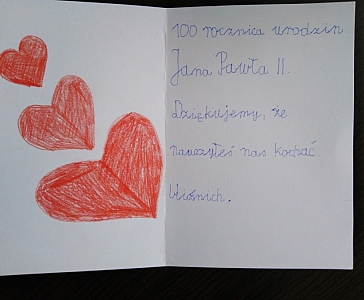 100 rocznica urodzin
Jana Pawła II.
Dziękujemy, że
nauczyłeś nas kochać
bliźnich.